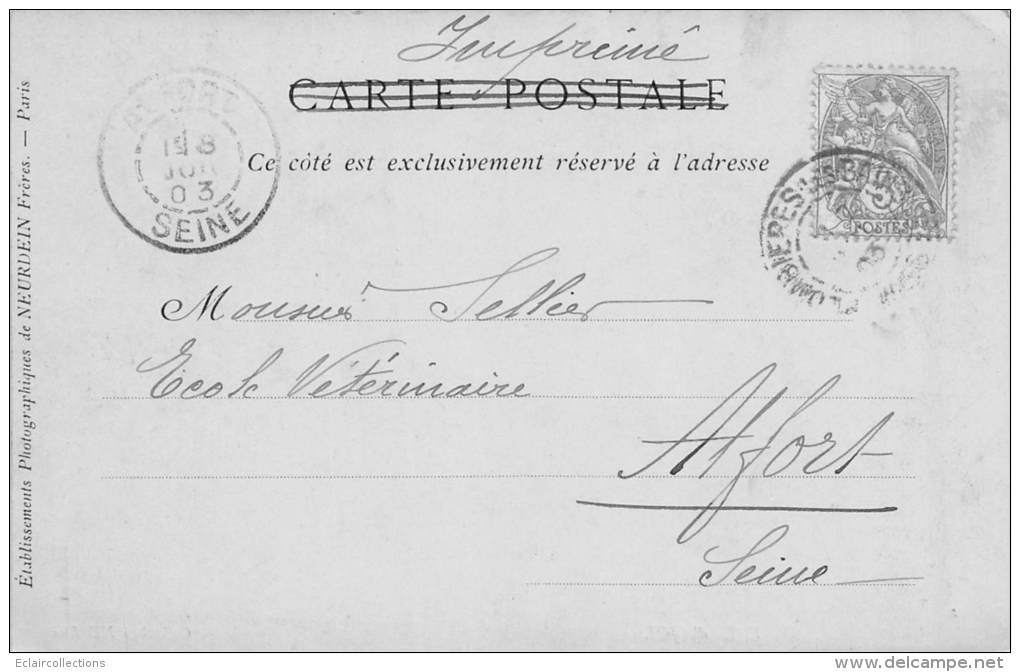 Imprimé
CARTE POSTALE
Ce côté est exclusivement réservé à l'adresse
Établissements Photographiques de NEURDEIN Frères. — Paris
03
SEINE
5
POSTES
PLOMBIERES LES BAINS
Monsieur Sellier
Ecole Vétérinaire
Alfort
Seine
Eclaircollections
www.delcampe.net